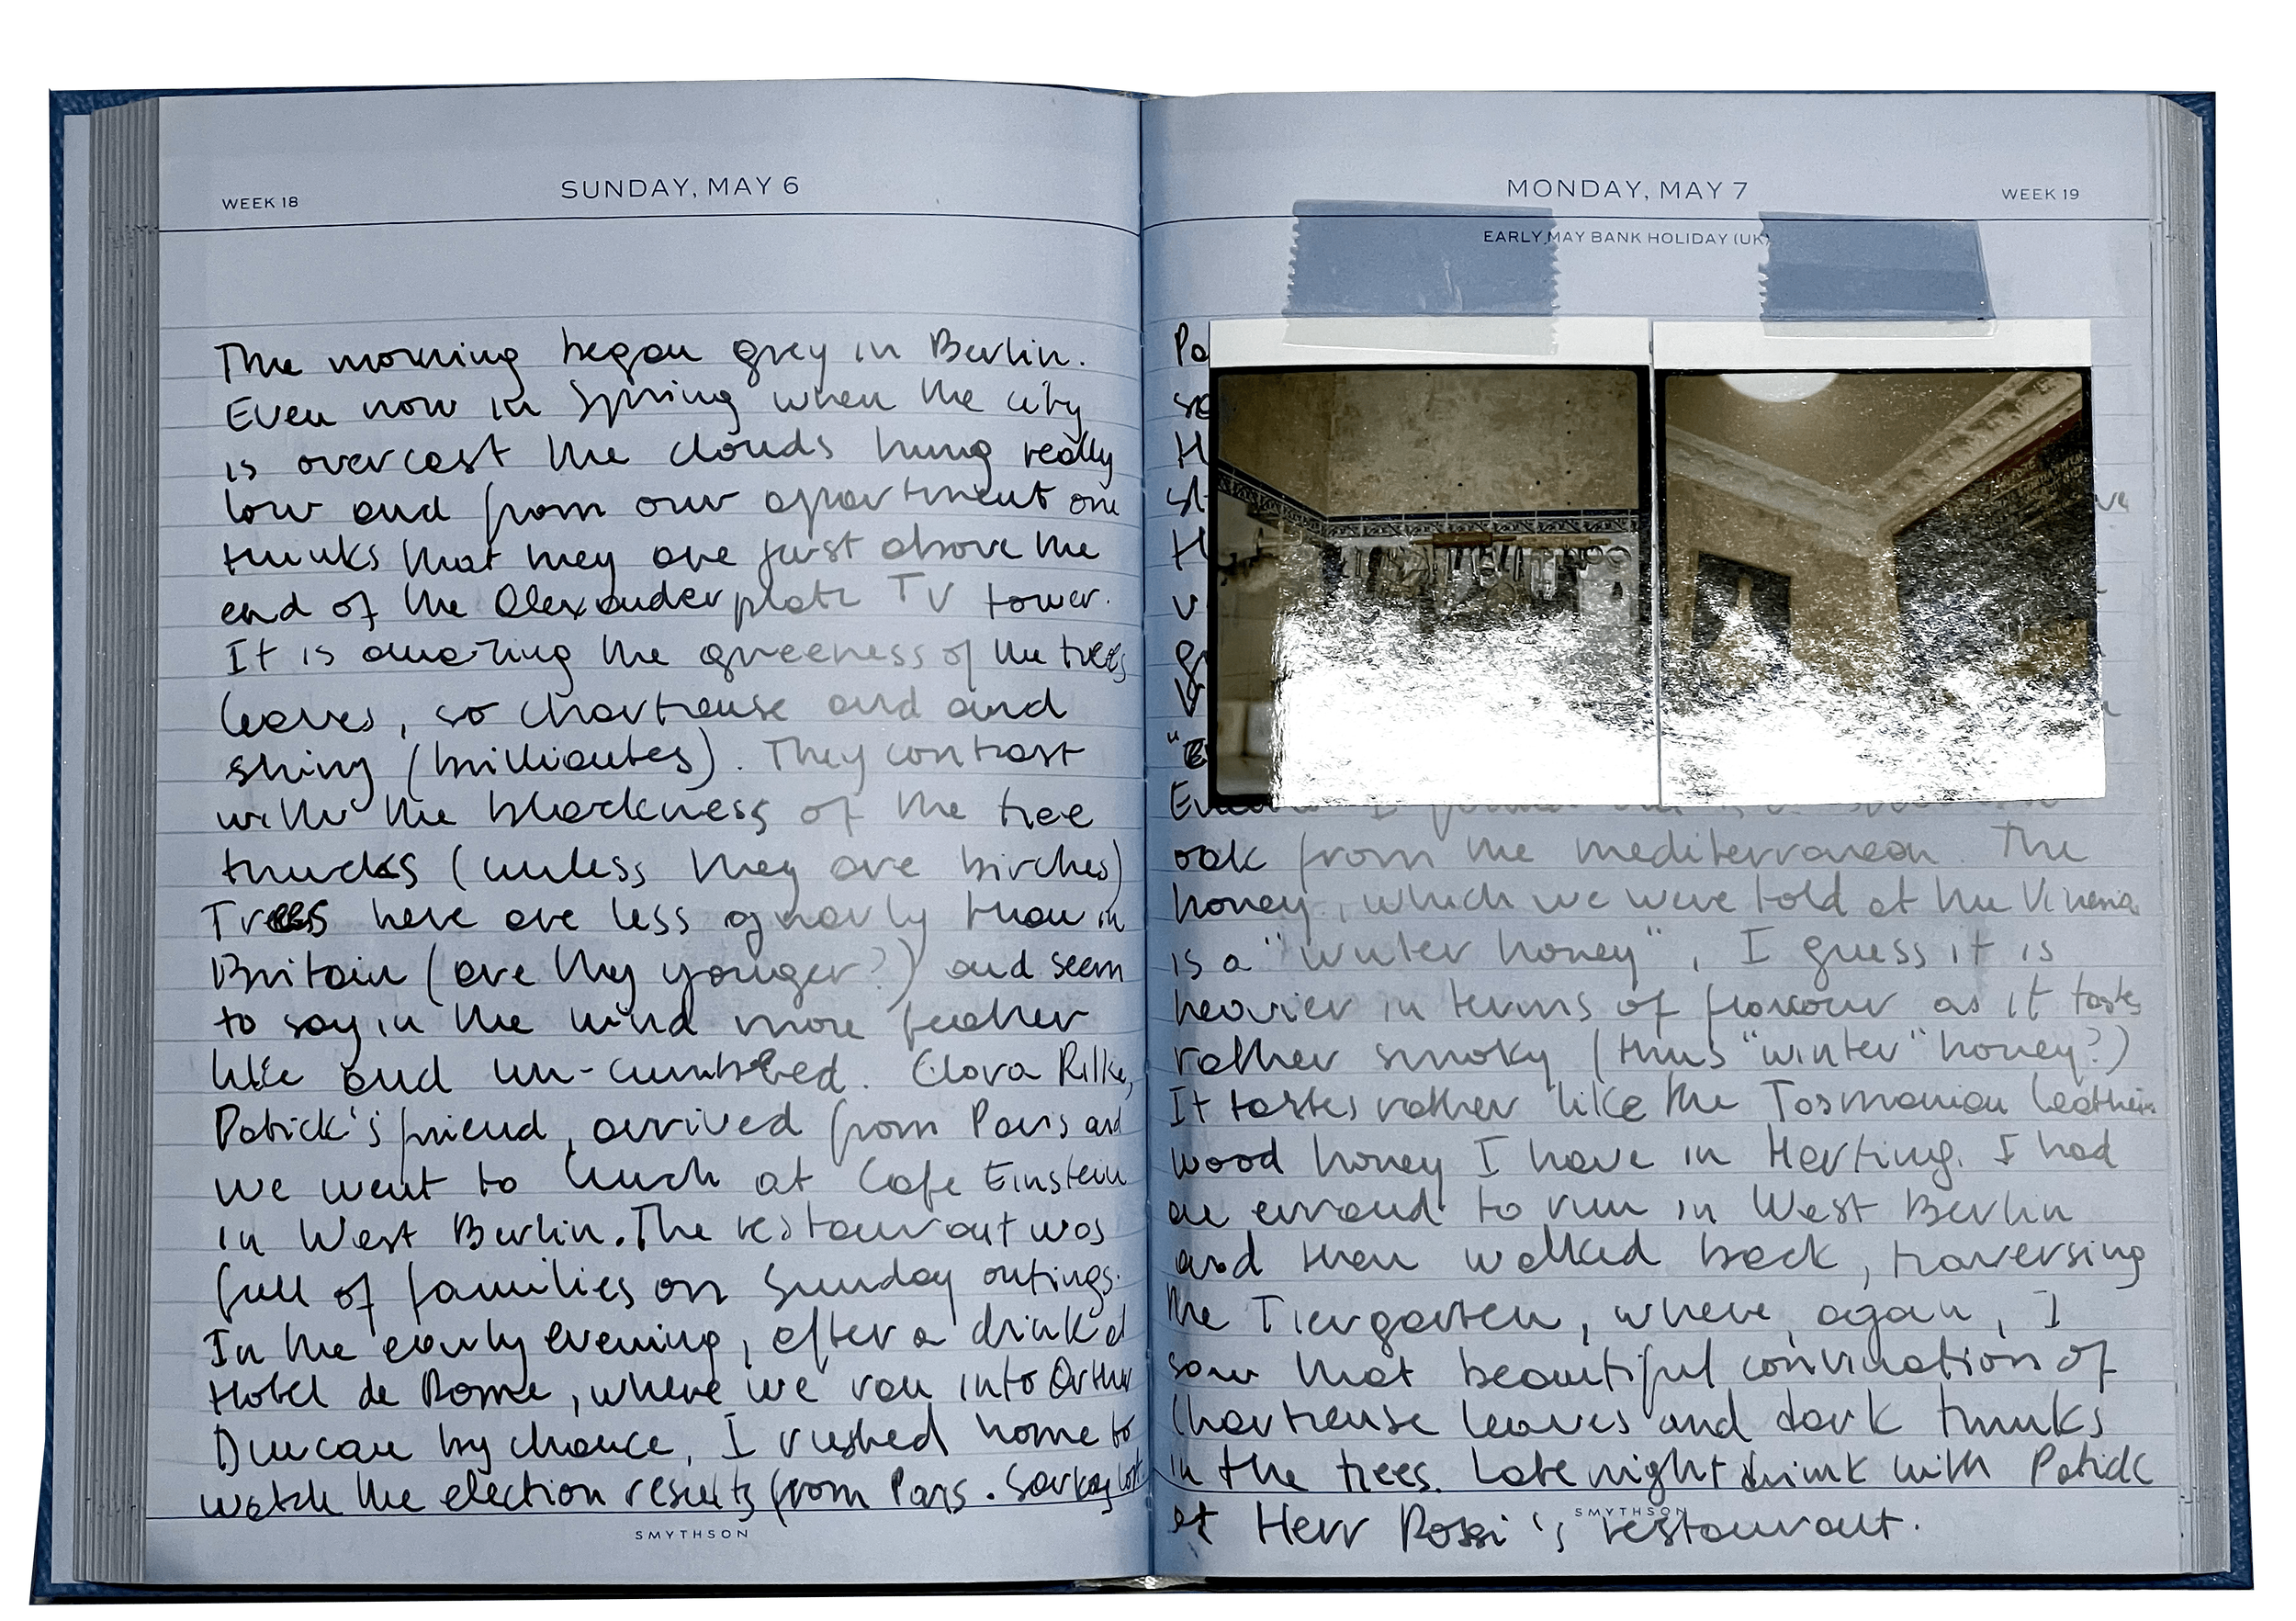 WEEK 18
SUNDAY, MAY 6
The morning began grey in Berlin.
Even now in Spring when the city
is overcast the clouds hung really
low and from our apartment one
thinks that they are just above the
end of the Alexanderplatz TV tower.
It is amazing the greeness of the trees
leaves, so chartreuse and and
shiny (brilliantes). They contrast
with the blackness of the tree
trunks (unless they are birches)
Trees here are less gnarly than in
Britain (are they younger?) and seem
to say in the wind more feather
like and un-cumbered. Clara Rilke,
Patick's friend, arrived from Paris and
we went to lunch at Cafe Einstein
in West Berlin. The restaurant was
full of families on Sunday outings.
In the early evening, after a drink at
Hotel de Rome, where we ran into Arthur
Duncan by chance, I rushed home to
watch the election results from Paris. Sarkozy lost
SMYTHSON
MONDAY, MAY 7
WEEK 19
EARLY MAY BANK HOLIDAY (UK)
oak from the mediterranean. The
honey, which we were told at the
is a "winter honey", I guess it is
heavier in terms of flavour as it tastes
rather smoky (thus "winter" honey?)
It tastes rather like the Tasmanian leather
wood honey I have in Harting. I had
an errand to run in West Berlin
and then walked back, traversing
the Tiergarten, where, again, I
saw that beautiful convination of
chartreuse leaves and dark trunks
in the trees. Late night drink with Patick
at Herr Rossi's restaurant.
SMYTHSON